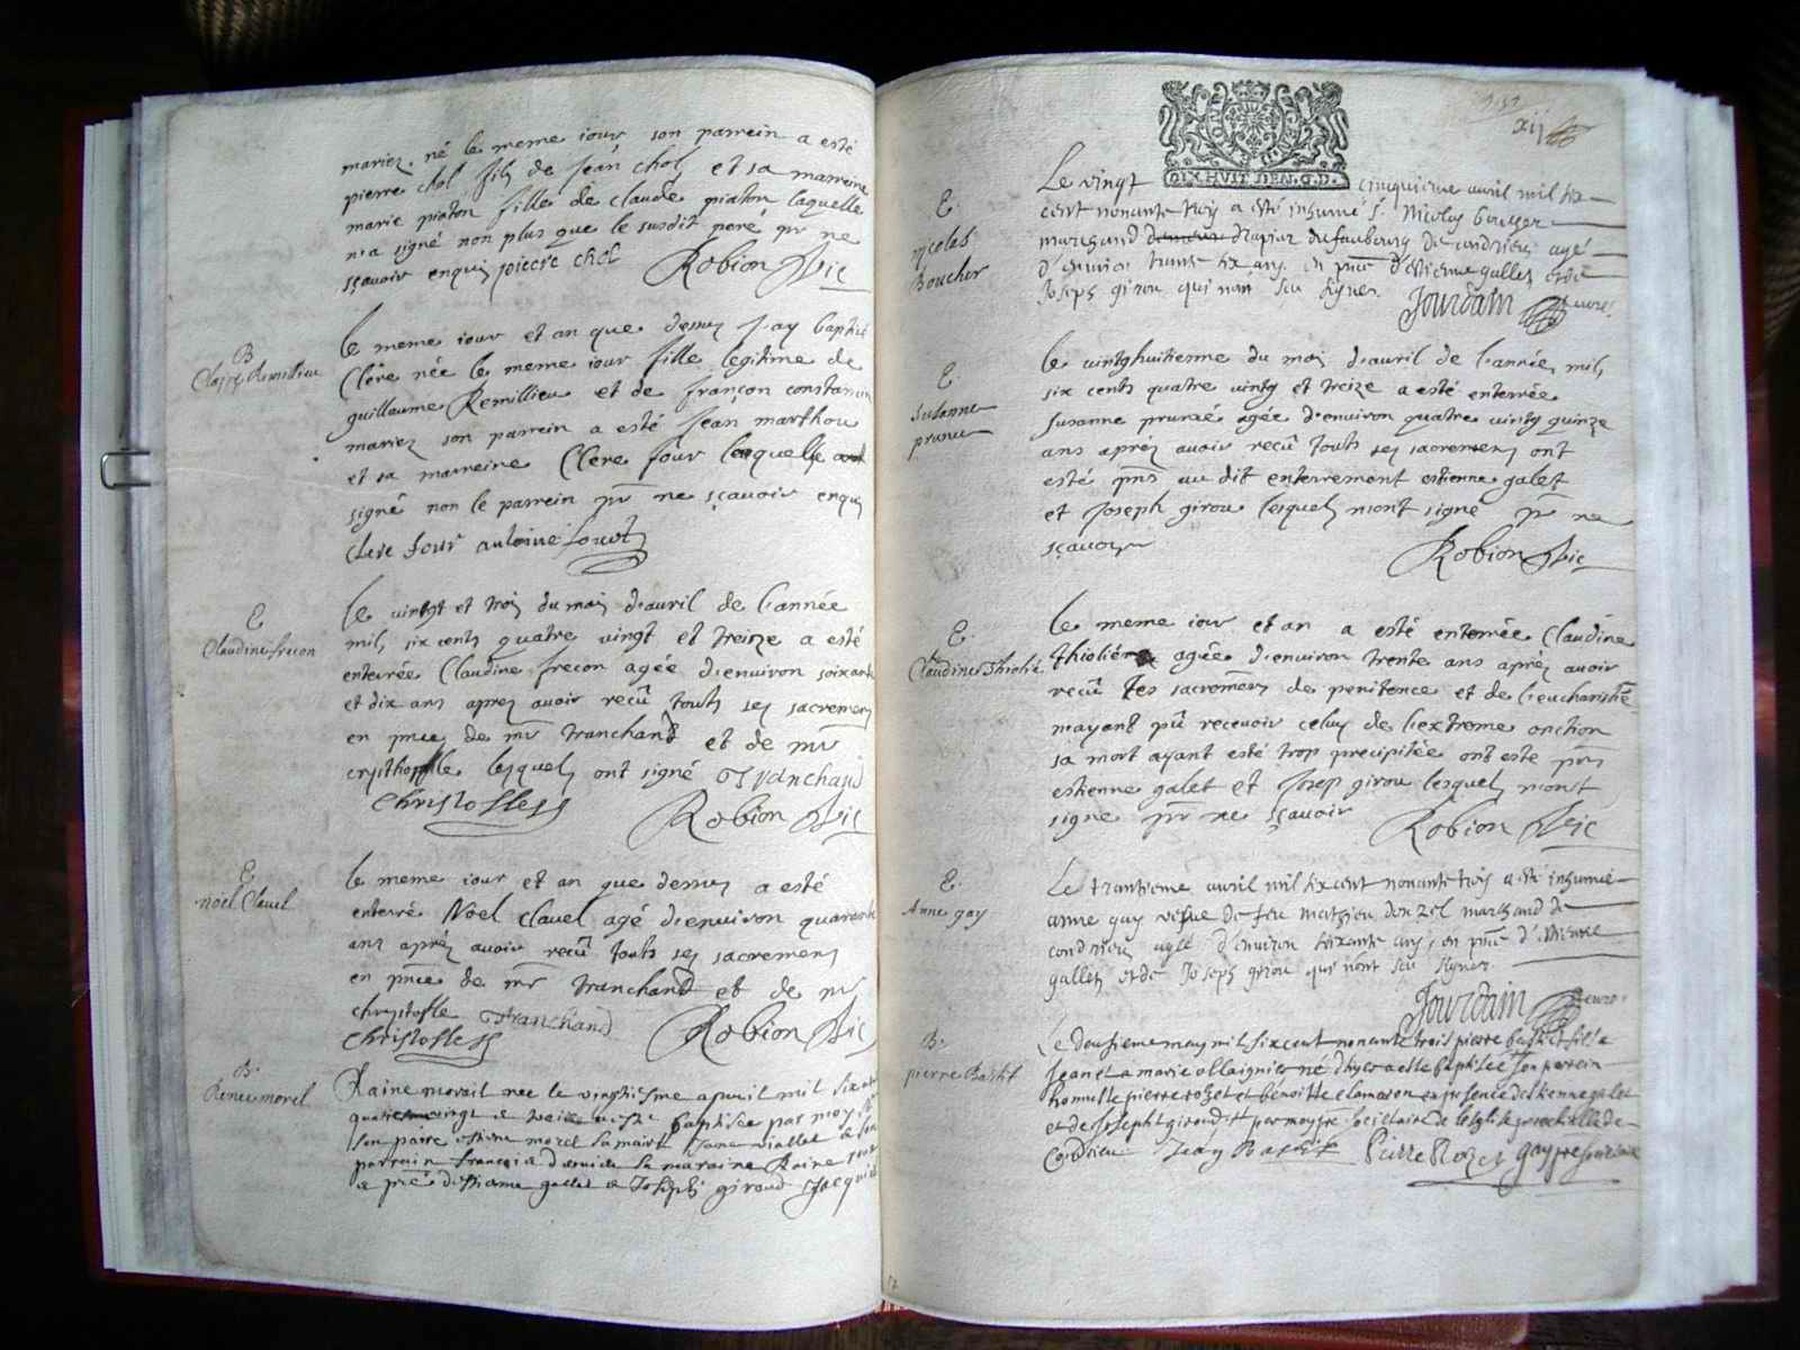 mariez. né le meme iour son parrein a esté
pierre chol fils de Jean chol et sa marreine
marie piaton fille de claude piaton laquelle
n'a signé non plus que le susdit peré pr ne
sçavoir enquis pierre chol Robion Vic
B
Claire Remillieu
le meme iour et an que dessus J'ay baptisé
Clere née le meme iour fille legitime de
guillaume Remillieu et de françon constantin
mariez son parrein a esté Jean marthou
et sa marreine Clere four laquelle a
signé non le parrein pr ne sçavoir enquis
clere four antoine
E
Claudine frecon
le vingt et trois du mois d'auril de l'année
mil, six cents quatre vingt et treize a esté
enterrée Claudine frecon agée d'enuiron soixante
et dix ans apres auoir recû touts ses sacremens
en pnce de mr tranchand et de mr
crysthofle lesquels ont signé Tranchand
Christofle Robion Vic
E
noel Clauel
le meme iour et an que dessus a esté
enterré Noel clauel agé d'enuiron quarante
ans aprés auoir recû touts ses sacremens
en pnce de mr tranchand et de mr
chrystofle Tranchand Robion Vic
Christofle
B.
Renee morel
Raine morail nee le vingtiesme apuril mil six
quatre vingt e treise a este baptisee par moy
son paire estiene morel sa maire Jane viallet e son
parrain francois sa maraine Raine
e pnce destiene gallet e Joseph giroud Jacquie
DIX HUIT DEN. G.D.
xij
E.
nicolas
Boucher
Le vingt cinquieme auril mil six
cent nonante trois a esté inhumé s. Nicolas boucher
marchand drapier du faubourg de condrieu agé
d'enuiron trante six ans. en pnce d'estienne gallet et de
Joseph girou qui n'ont sceu signer. Jourdain curé.
E.
Susanne
prunier
le vintghuitienne du mois d'auril de l'année mil,
six cents quatre vingts et treize a esté enterrée
Susanne agée d'enuiron quatre vingts quinze
ans aprés auoir recû touts ses sacremens ont
esté pnts au dit enterrement estienne galet
et Joseph girou lesquels n'ont signé pr ne
sçauoir Robion Vic
E.
Claudine Thiolié
le meme iour et an a esté enterrée Claudine
thioliére agée d'enuiron trente ans aprés auoir
recû les sacremens de penitence et de l'eucharistie
n'ayant pû receuoir celuy de l'extreme onction
sa mort ayant esté trop precipitée ont este pnts
estienne galet et Josep girou lesquels n'ont
signe pr ne sçauoir Robion Vic
E.
Anne gay
Le trantieme auril mil six cent nonante trois a esté inhumée
anne gay vefue de feu mathieu donzel marchand de
condrieu agée d'enuiron soixante ans, en pnce d'estienne
gallet et de Joseph girou qui n'ont sceu signer.
Jourdain curé.
B.
pierre Bastit
Le deusieme may mil six cent nonante trois pierre bastit fils a
Jean et a marie allaignier né d'hyer a este baptisée son parrein
homme pierre rozet et bénoitte clamaron en presence d'estienne galet
et de Joseph giroud et par moy pre societaire de leglise parochielle de
Condrieu Jean Bastit Pierre Rozet gay pre societaire